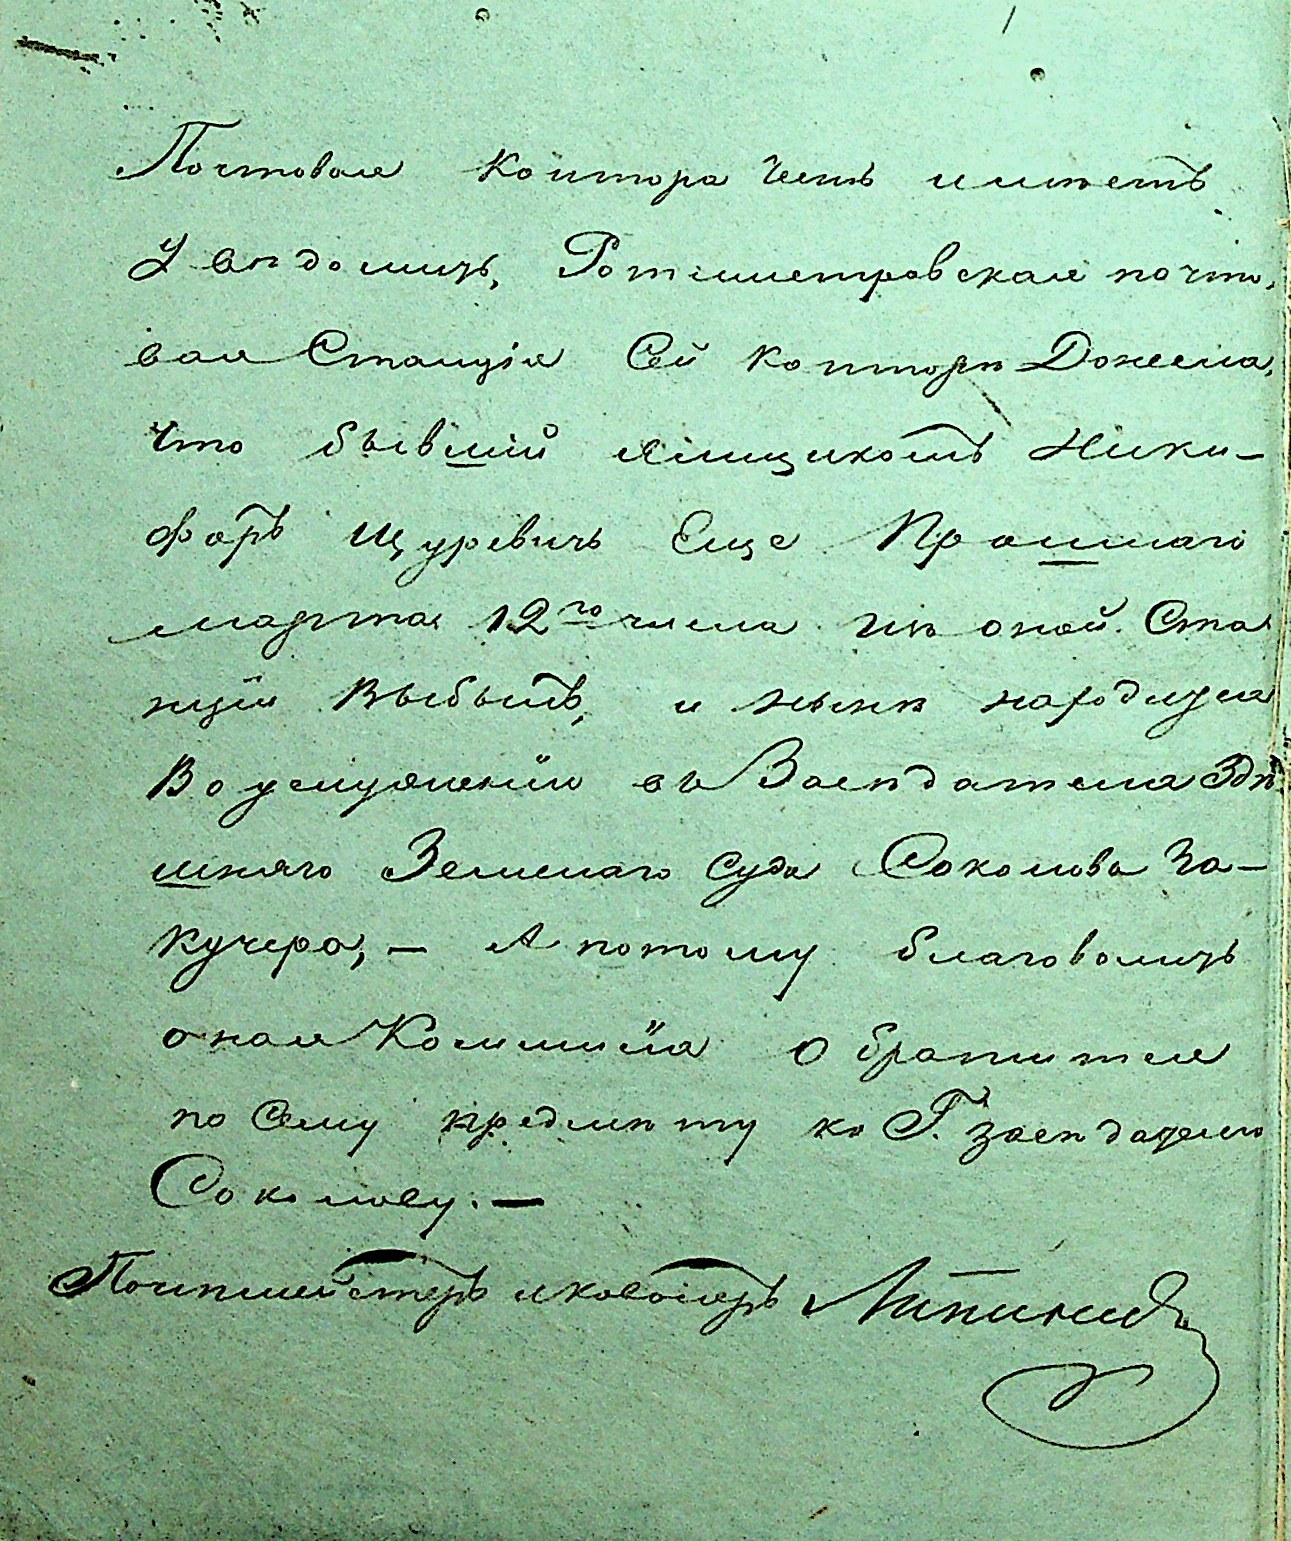 Почтовая контора честь имѣетъ
увѣдомить, Ротмистровская почто,
вая Станція Сей конторѣ Донесла,
что бывшій ямщикомъ Ники-
форъ Щуревичь Еще Прошлаго
марта 12го числа изъ оной Ста
нціи выбылъ, и нынѣ находится
въ услуженіи у Засѣдателя Здѣ
шняго Земскаго суда Соколова за-
кучера, - А потому благоволитъ
оная Коммисія обратится
по сему предмѣту къ Г. засѣдателю
Соколову. -
Почтмейстеръ и кавалеръ